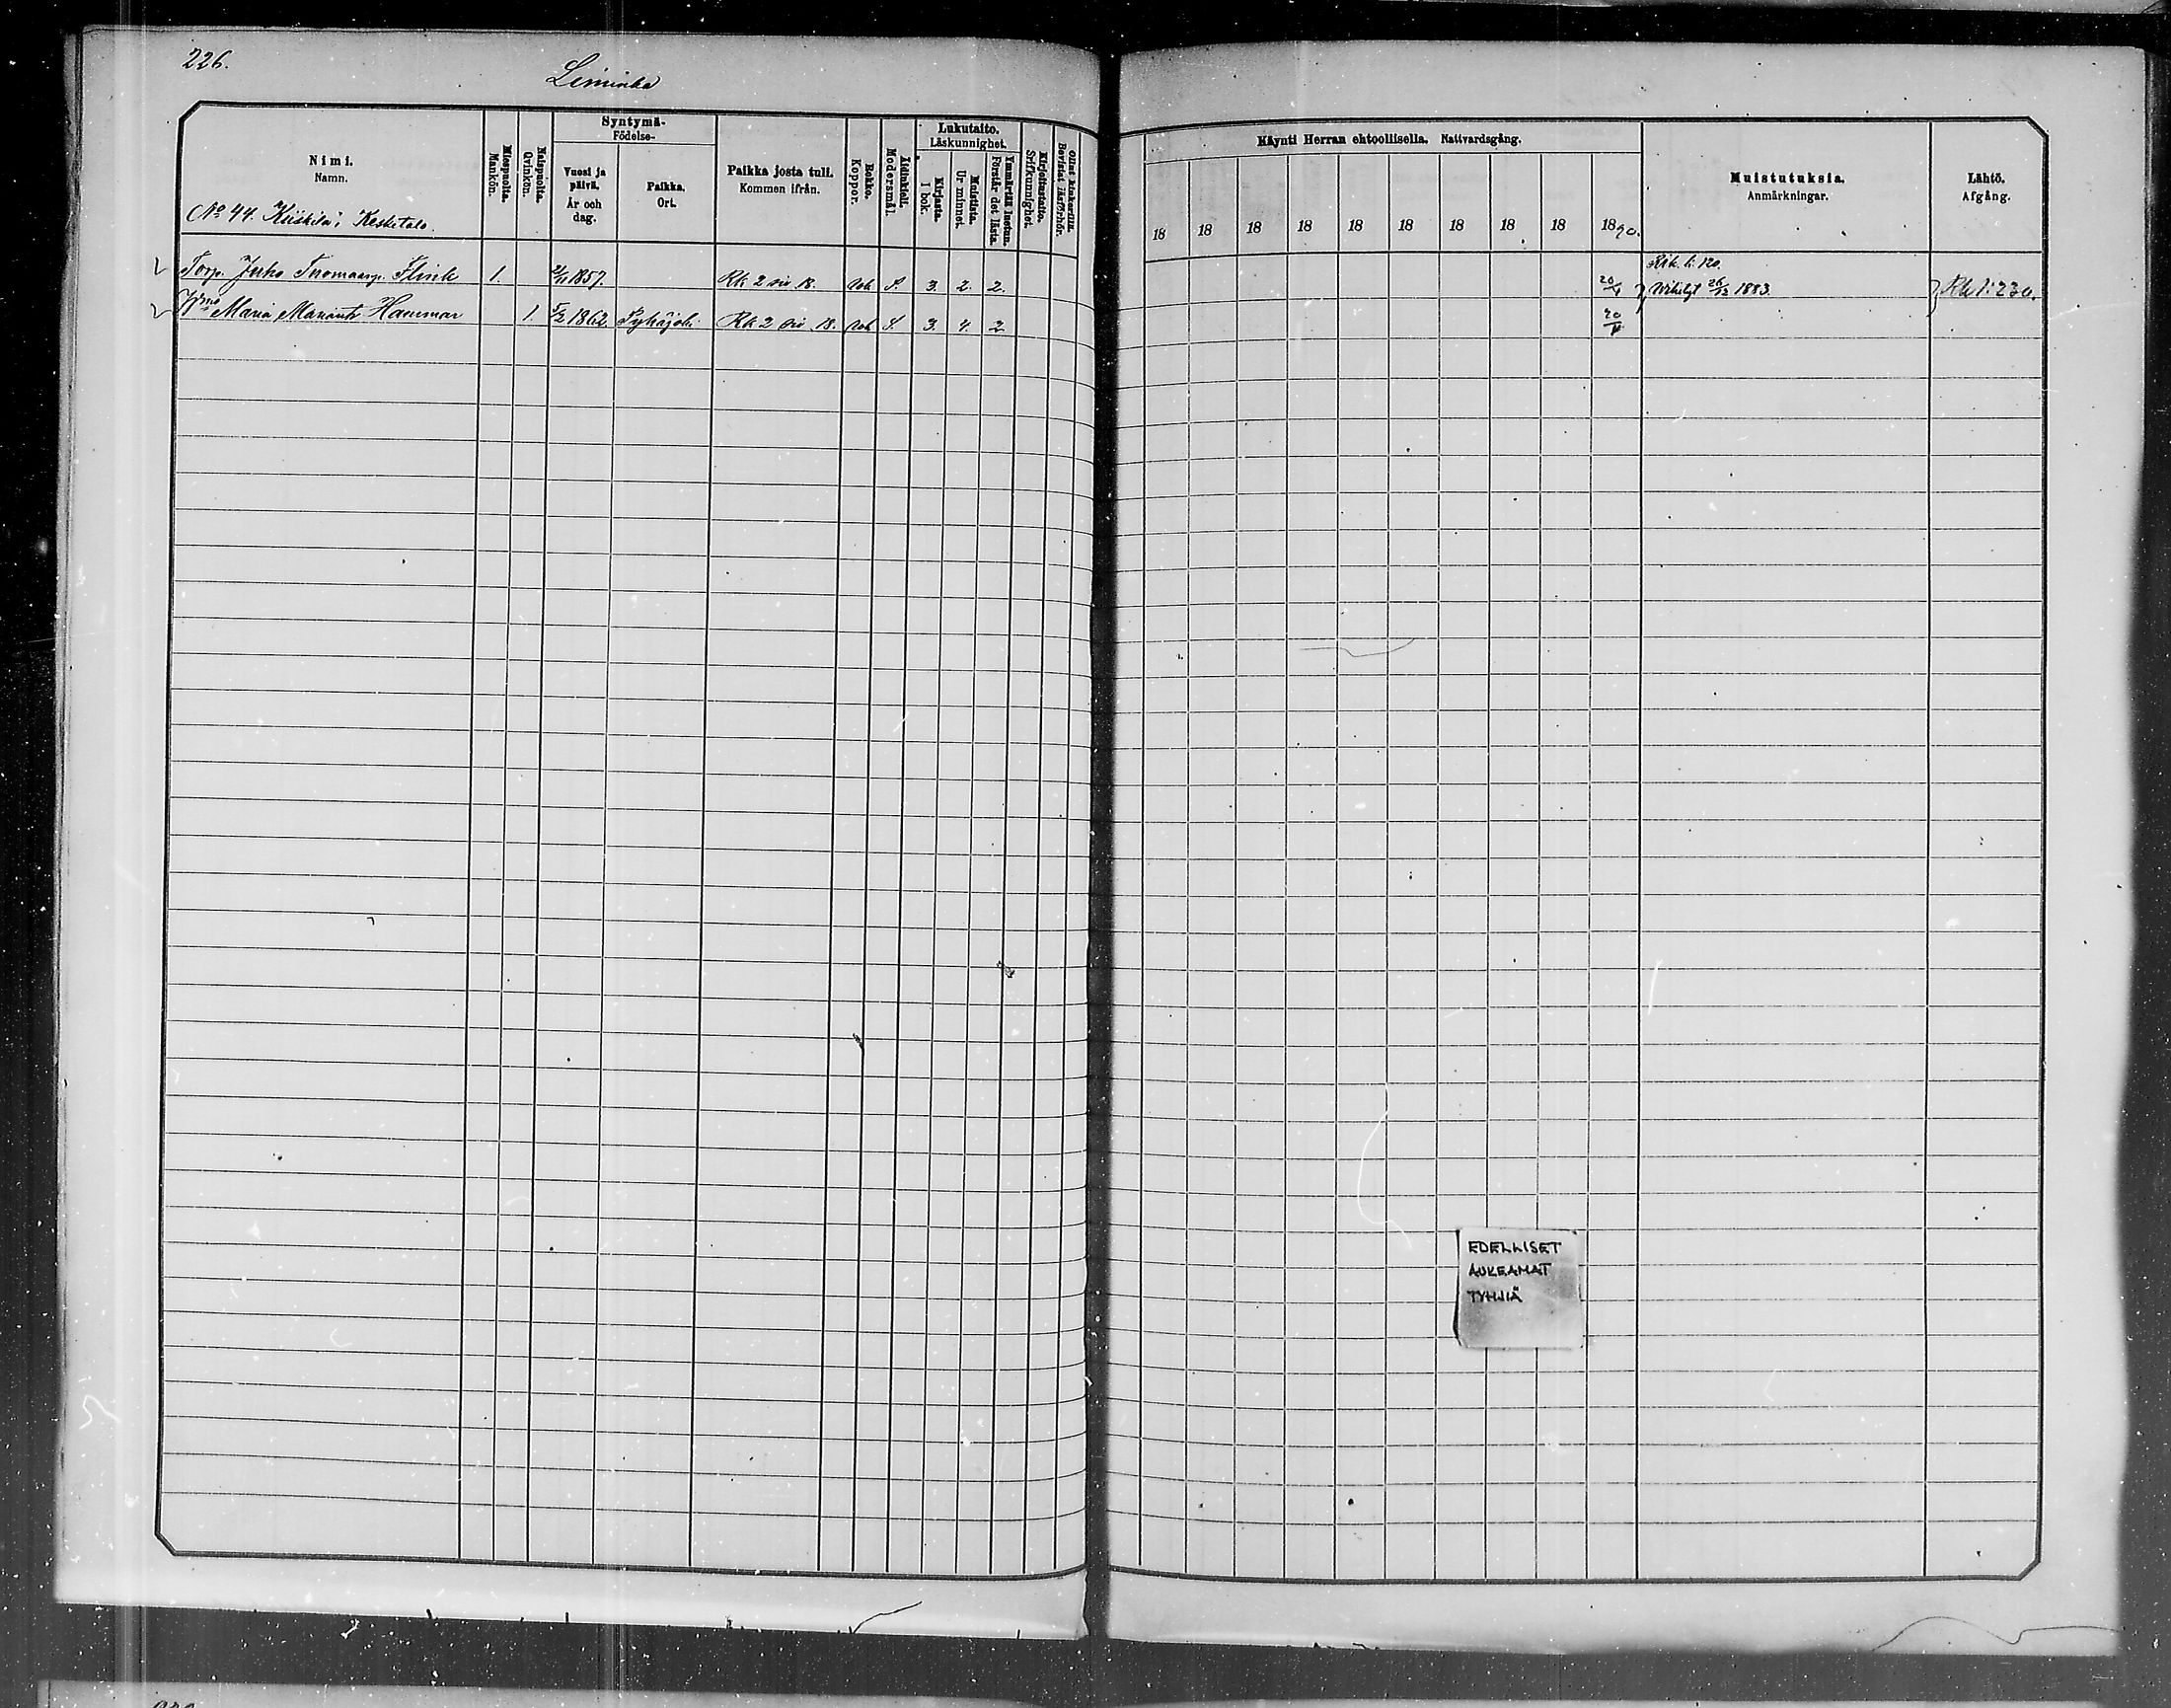 226.
Liminka
Nimi.
Namn.
No 44. Kiiskilä; Keskitalo.
Miespuolta.
Mankön.
Naispuolta.
Qvinkön.
Syntymä-
Födelse-
Vuosi ja päivä.
År och dag.
Paikka.
Ort.
Paikka josta tuli.
Kommen ifrån.
Rokko.
Koppor.
Äidinkieli.
Modersmål.
Lukutaito.
Läskunnighet.
Kirjasta.
I bok.
Muistista.
Ur minnet.
Ymmärtää luetun.
Förstår det lästa.
Kirjoitustaito.
Srifkunnighet.
Ollut kinkerillä.
Bevistat läsförhör.
Käynti Herran ehtoollisella. Nattvardsgång.
18 18 18 18 18 18 18 18 18 1890.
Muistutuksia.
Anmärkningar.
Lähtö.
Afgång.
Rk. l. 120.
Torp. Juho Thomaanp. Flink 1. 2/11 1857. Rk 2 siv 18. rok S. 3. 2. 2. 20/4 Vihityt 26/12 1883. Rk 1: 230.
Vmo Maria Mariant Hammar 1. 5/2 1862 Pyhäjoki Rk 2 siv. 18. rok S. 3. 4. 2 20/4
EDELLISET
AUKEAMAT
TYHJIÄ